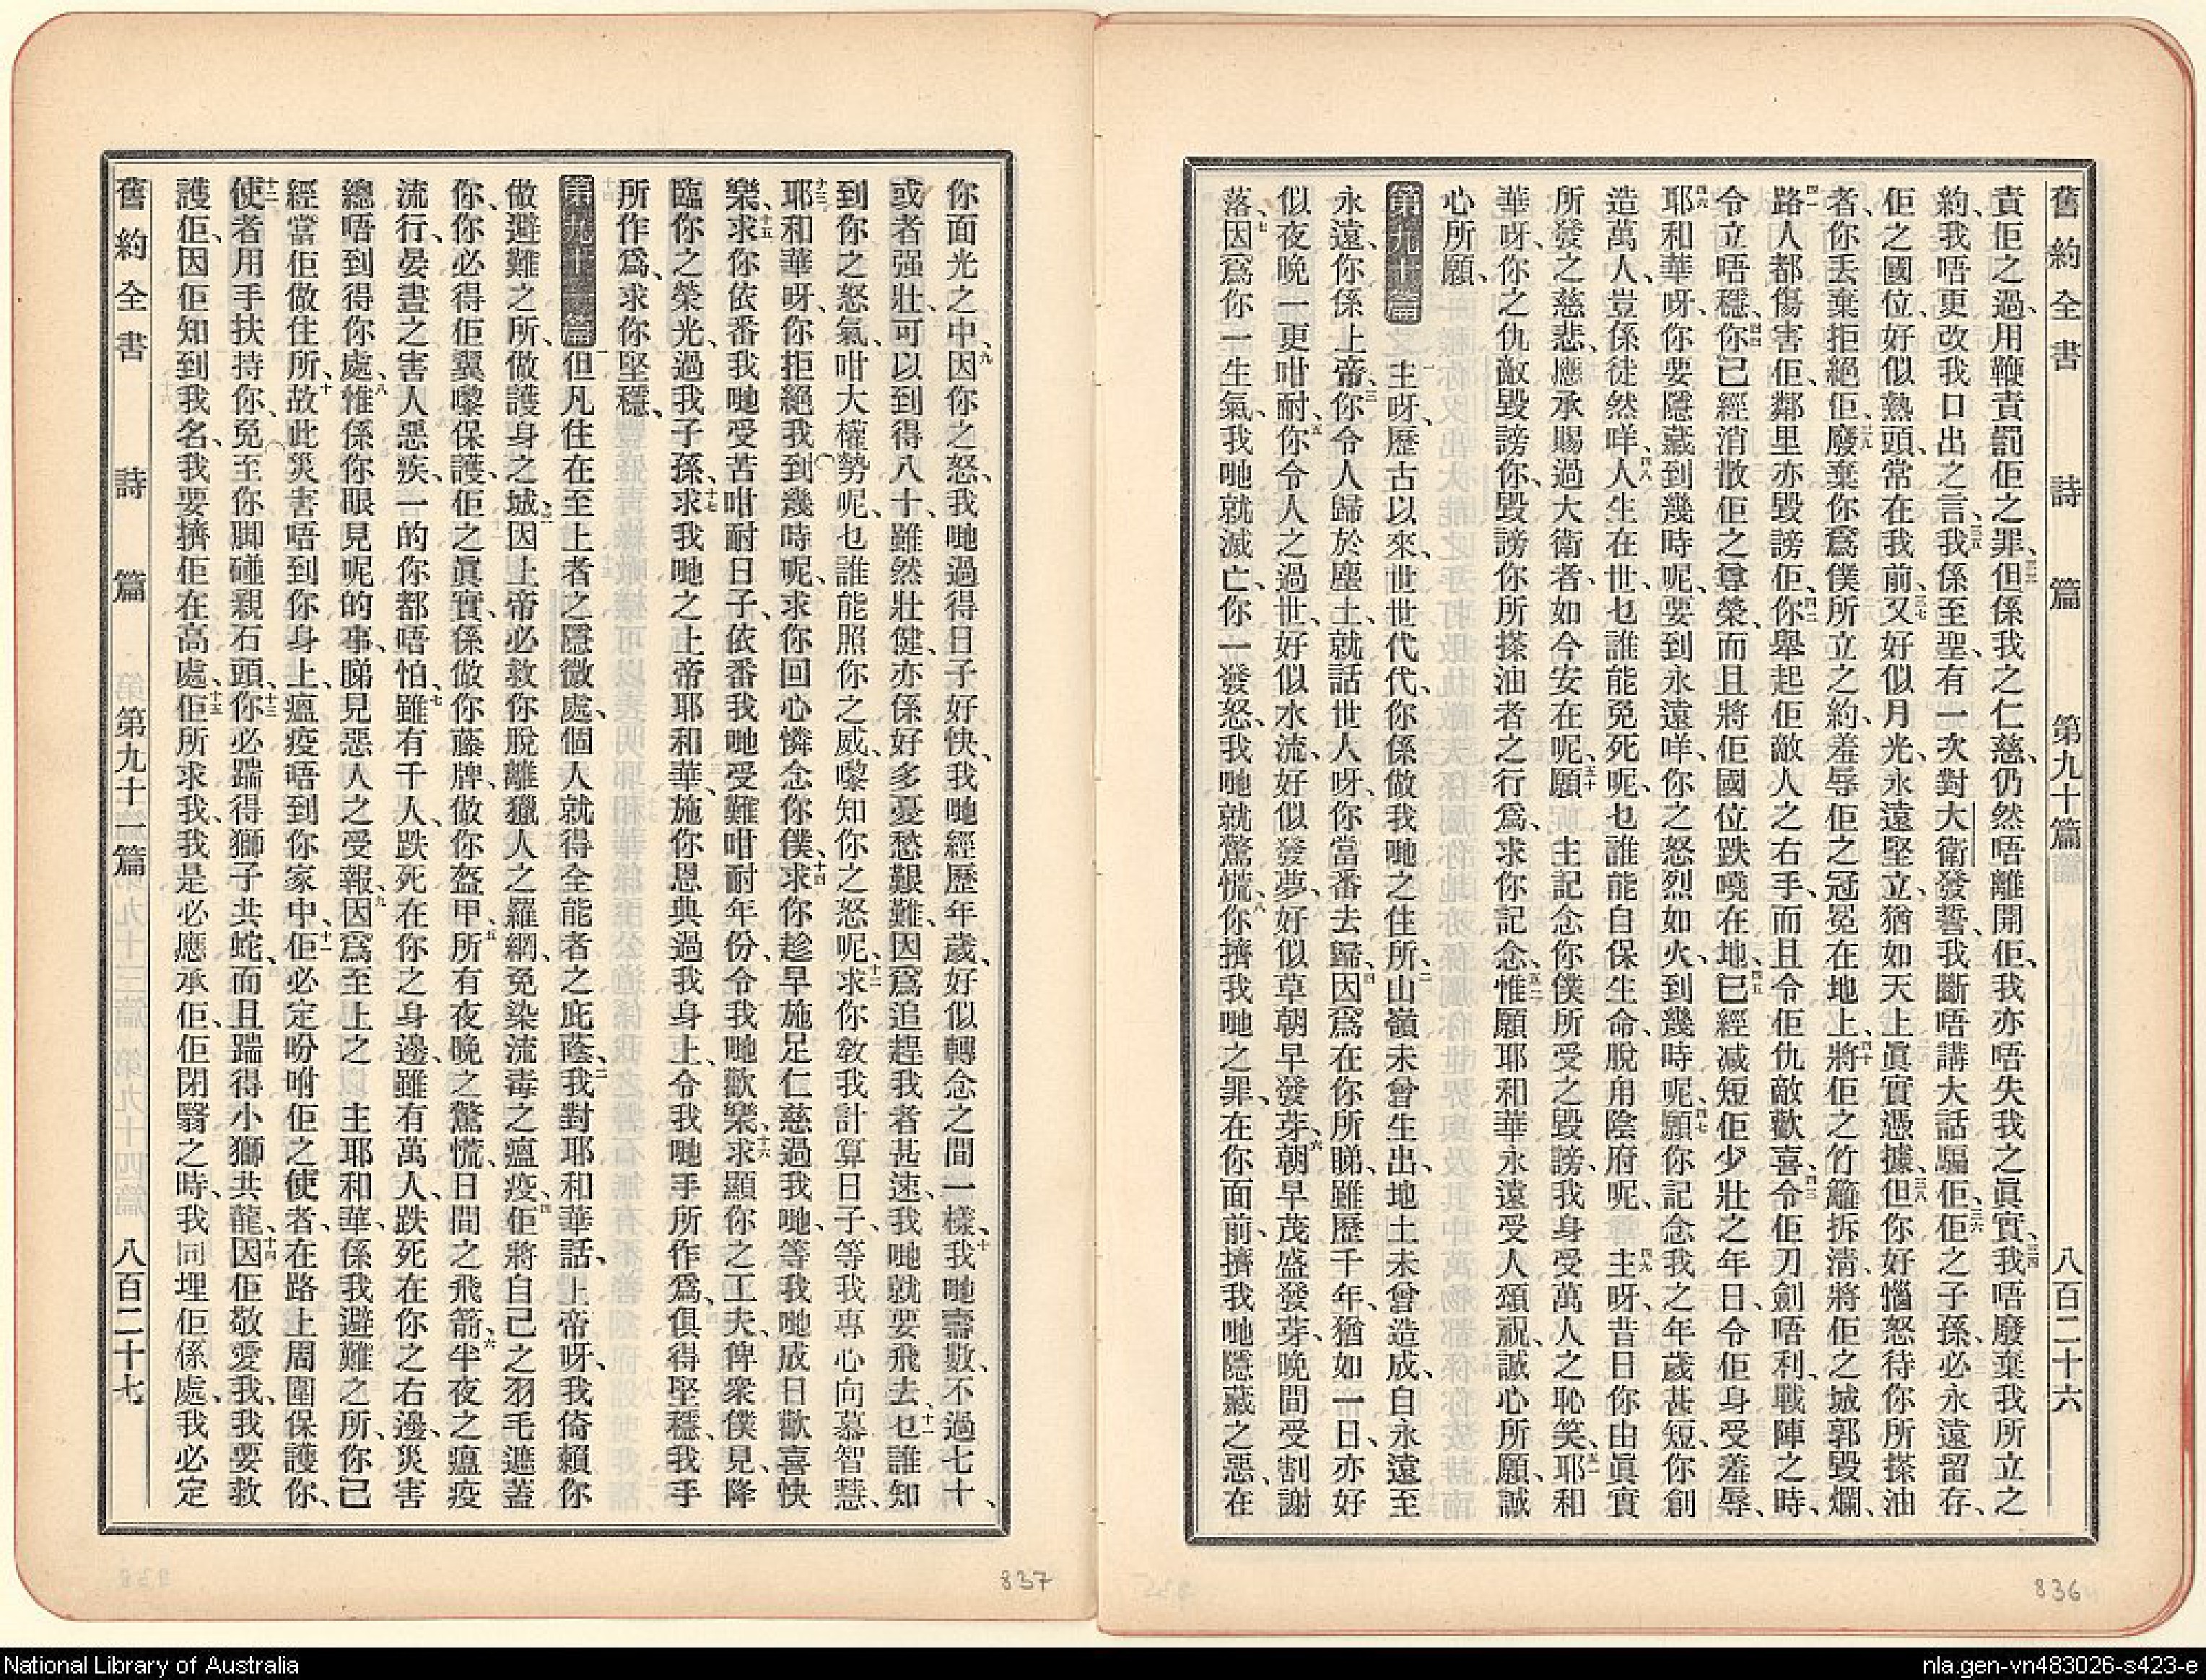 舊約全書 詩篇 第九十篇 八百二十六
責佢之過、用鞭責罰佢之罪、但係我之仁慈、仍然唔離開佢、我亦唔失我之眞實、我唔廢棄我所立之
約、我唔更改我口出之言、我係至聖、有一次對大衛發誓、我斷唔講大話騙佢、佢之子孫必永遠留存、
佢之國位、好似熱頭、常在我前、又好似月光、永遠堅立、猶如天上眞實憑據、但你好惱怒待你所搽油
者、你丟棄拒絕佢、廢棄你爲僕所立之約、羞辱佢之冠冕在地上、將佢之竹籬拆淸、將佢之城郭毀爛、
路人都傷害佢、鄰里亦毀謗佢、你舉起佢敵人之右手、而且令佢仇敵歡喜、令佢刀劍唔利、戰陣之時、
令立唔穩、你已經消散佢之尊榮、而且將佢國位跌嘵在地、已經减短佢少壯之年日、令佢身受羞辱、
耶和華呀、你要隱藏到幾時呢、要到永遠咩、你之怒烈如火、到幾時呢、願你記念我之年歲甚短、你創
造萬人、豈係徒然咩、人生在世、乜誰能免死呢、乜誰能自保生命、脫甩陰府呢、 主呀、昔日你由眞實
所發之慈悲、應承賜過大衛者、如今安在呢、願 主記念你僕所受之毀謗、我身受萬人之恥笑、耶和
華呀、你之仇敵毀謗你、毀謗你所搽油者之行爲、求你記念、惟願耶和華永遠受人頌祝、誠心所願、誠
心所願、
第九十篇 主呀、歷古以來、世世代代、你係做我哋之住所、山嶺未曾生出、地土未曾造成、自永遠至
永遠、你係上帝、你令人歸於塵土、就話世人呀、你當番去歸、因爲在你所睇、雖歷千年、猶如一日、亦好
似夜晚一更咁耐、你令人之過世、好似水流、好似發夢、好似草朝早發芽、朝早茂盛發芽、晚間受割謝
落、因爲你一生氣、我哋就滅亡、你一發怒、我哋就驚慌、你擠我哋之罪、在你面前、擠我哋隱藏之惡、在
你面光之中、因你之怒、我哋過得日子好快、我哋經歷年歲、好似轉念之間一樣、我哋壽數、不過七十、
或者强壯、可以到得八十、雖然壯健、亦係好多憂愁艱難、因爲追趕我者甚速、我哋就要飛去、乜誰知
到你之怒氣、咁大權勢呢、乜誰能照你之威、嚟知你之怒呢、求你敎我計算日子、等我專心向慕智慧、
耶和華呀、你拒絕我到幾時呢、求你回心憐念你僕、求你趁早施足仁慈過我哋、等我哋成日歡喜快
樂、求你依番我哋受苦咁耐日子、依番我哋受難咁耐年份、令我哋歡樂、求顯你之工夫、俾衆僕見、降
臨你之榮光、過我子孫、求我哋之上帝耶和華、施你恩典過我身上、令我哋手所作爲、俱得堅穩、我手
所作爲、求你堅穩、
第九十一篇 但凡住在至上者之隱微處、個人就得全能者之庇蔭、我對耶和華話、上帝呀、我倚賴你
做避難之所、做護身之城、因上帝必救你脫離獵人之羅網、免染流毒之瘟疫、佢將自己之羽毛遮蓋
你、你必得佢翼嚟保護、佢之眞實、係做你藤牌、做你盔甲、所有夜晚之驚慌、日間之飛箭、半夜之瘟疫
流行、晏晝之害人惡疾、一的你都唔怕、雖有千人、跌死在你之身邊、雖有萬人、跌死在你之右邊、災害
總唔到得你處、惟係你眼見呢的事、睇見惡人之受報、因爲至上之 主耶和華、係我避難之所、你已
經當佢做住所、故此災害唔到你身上、瘟疫唔到你家中、佢必定吩咐佢之使者、在路上周圍保護你、
使者用手扶持你、免至你脚碰親石頭、你必踹得獅子共蛇、而且踹得小獅共龍、因佢敬愛我、我要救
護佢、因佢知到我名、我要擠佢在高處、佢所求我、我是必應承佢、佢閉翳之時、我同埋佢係處、我必定
舊約全書 詩篇 第九十一篇 八百二十七
836
837
National Library of Australia
nla.gen-vn483026-s423-e